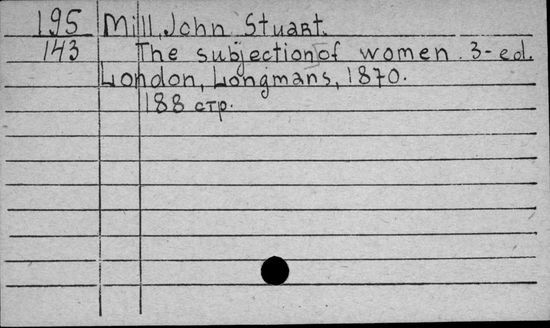 195 Mill, John Stuart.
143 The subjection of women. 3-ed.
London, Longmans, 1870.
188 стр.